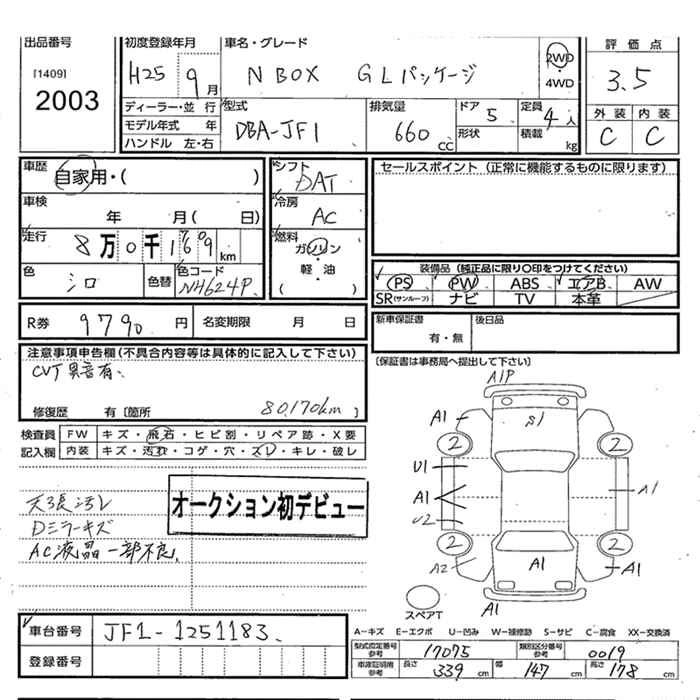 出品番号 初度登録年月 車名・グレード 2WD 評価点
[1409] H25 9月 N BOX GLパッケージ 4WD 3.5
2003 ディーラー・並行 型式 排気量 ドア 5 定員 4人 外装 内装
モデル年式 年 DBA-JF1 660cc 形状 積載 kg C C
ハンドル 左・右
車歴 自家用・( ) シフト DAT セールスポイント (正常に機能するものに限ります)
車検 年 月( 日) 冷房 AC
走行 8万0千169km 燃料 ガソリン・軽油 ( )
色 シロ 色替 色コード NH624P
装備品 (純正品に限り〇印をつけてください)
PS PW ABS エアB AW
SR(サンルーフ) ナビ TV 本革
R券 9790円 名変期限 月 日 新車保証書 有・無 後日品
注意事項申告欄(不具合内容等は具体的に記入して下さい) (保証書は事務局へ提出して下さい)
CVT異音有
修復歴 有 [箇所 80,170km ]
検査員 FW キズ・飛石・ヒビ割・リペア跡・X要
記入欄 内装 キズ・汚れ・コゲ・穴・スレ・キレ・破レ
オークション初デビュー
天張汚レ
Dミラーキズ
AC液晶一部不良
A1P
A1 S1
2 2
U1
A1 A1
U2
2 2
A2 A1 A1
スペアT A1
車台番号 JF1-1251183
登録番号
A-キズ E-エクボ U-凹み W-補修跡 S-サビ C-腐食 XX-交換済
型式指定番号 参考 17075 類別区分番号 参考 0019
車庫証明用 参考 長さ 339cm 幅 147cm 高さ 178cm